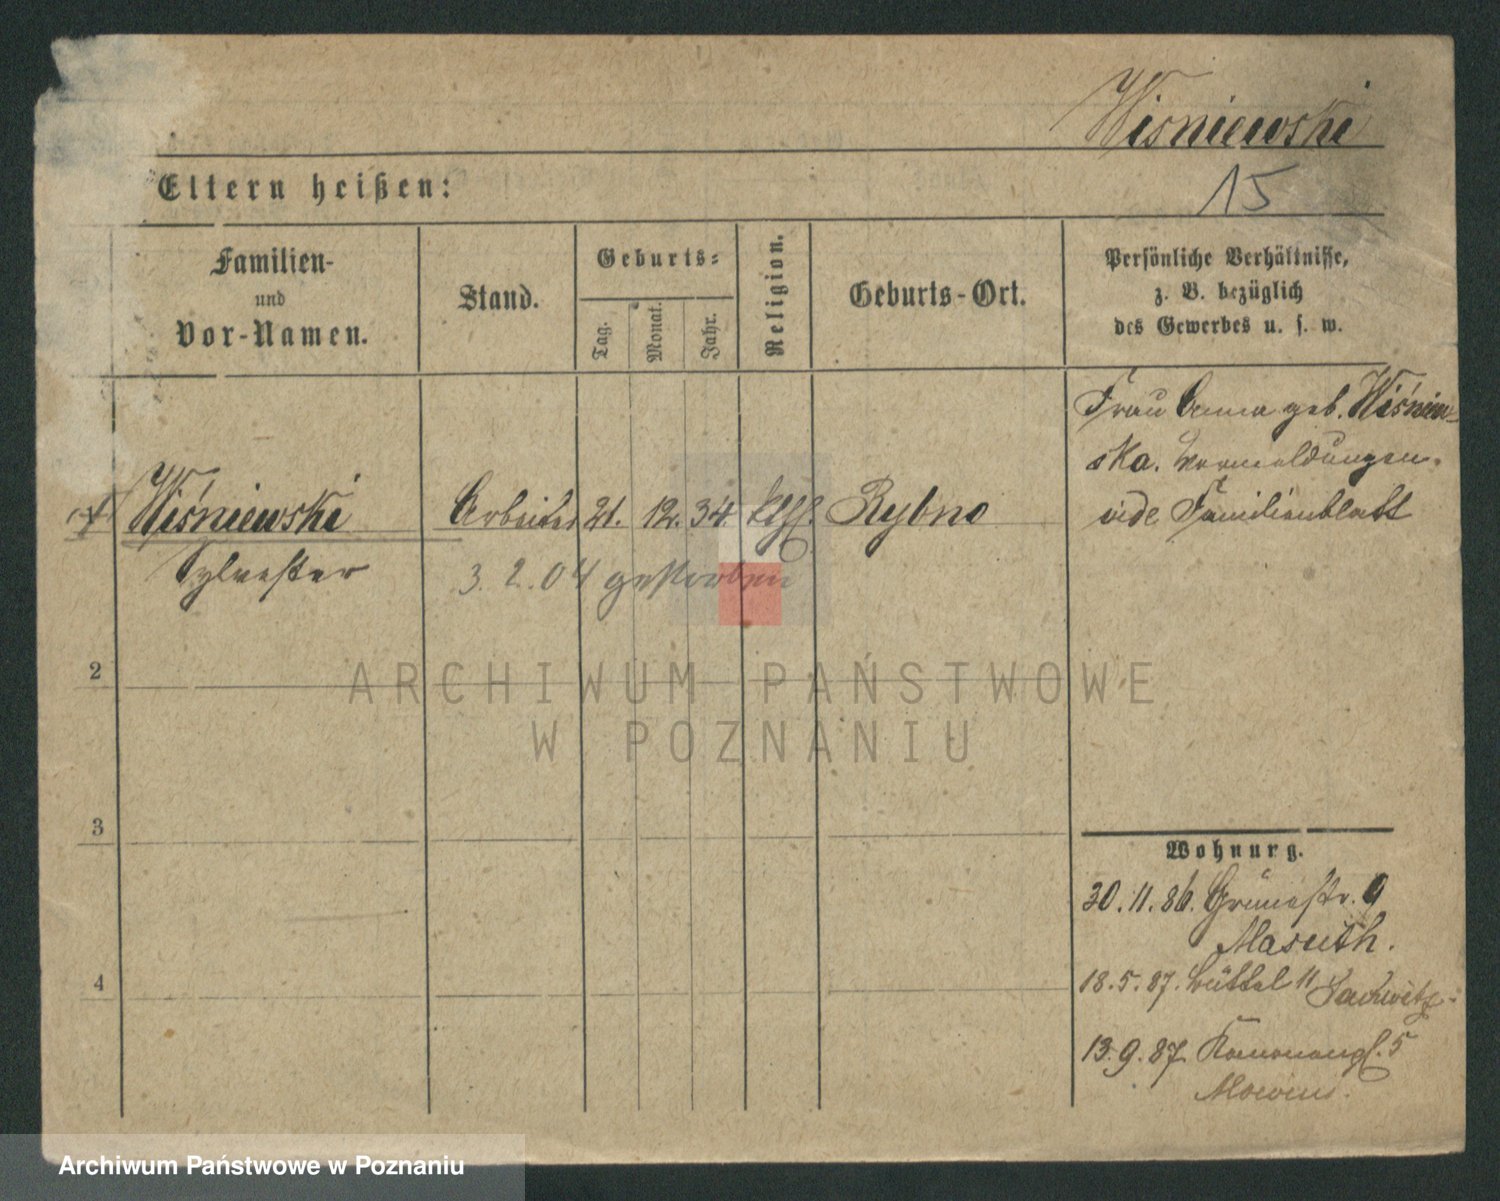 Wiśniewski
15
Eltern heißen:
Familien-
und
Vor-Namen.
Stand.
Geburts-
Tag.
Monat.
Jahr.
Religion.
Geburts-Ort.
Persönliche Verhältnisse,
z. B. bezüglich
des Gewerbes u. s. w.
Frau Anna geb. Wiśniew-
ska. Vormeldungen
vide Familienblatt
1 Wiśniewski Arbeiter 21. 12. 34. Rybno
Sylvester 3. 2. 04 gestorben
2
3
4
Wohnung.
30. 11. 86. Grünestr. 9
18. 5. 87. Büttel 11
13. 9. 87. 5
ARCHIWUM PAŃSTWOWE
W POZNANIU
Archiwum Państwowe w Poznaniu